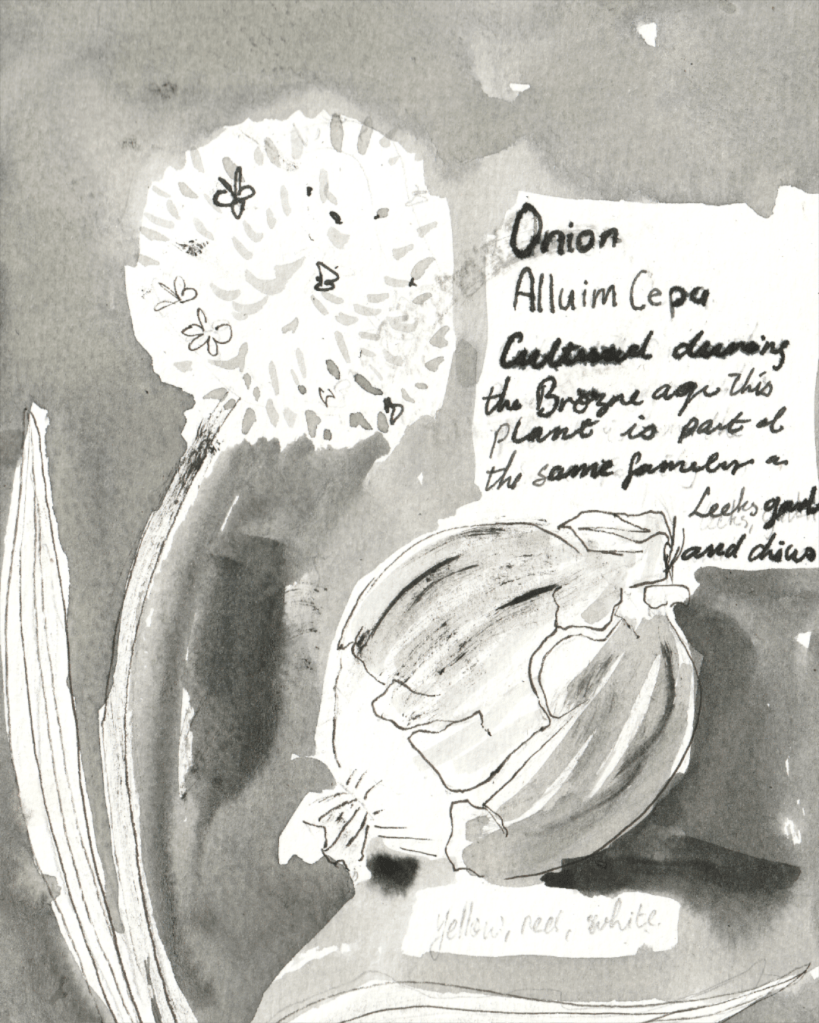 Onion
Alluim Cepa
Cultured durning
the Brozne age This
plant is part of
the same family as
Leeks garl
and chives
yellow, red, white